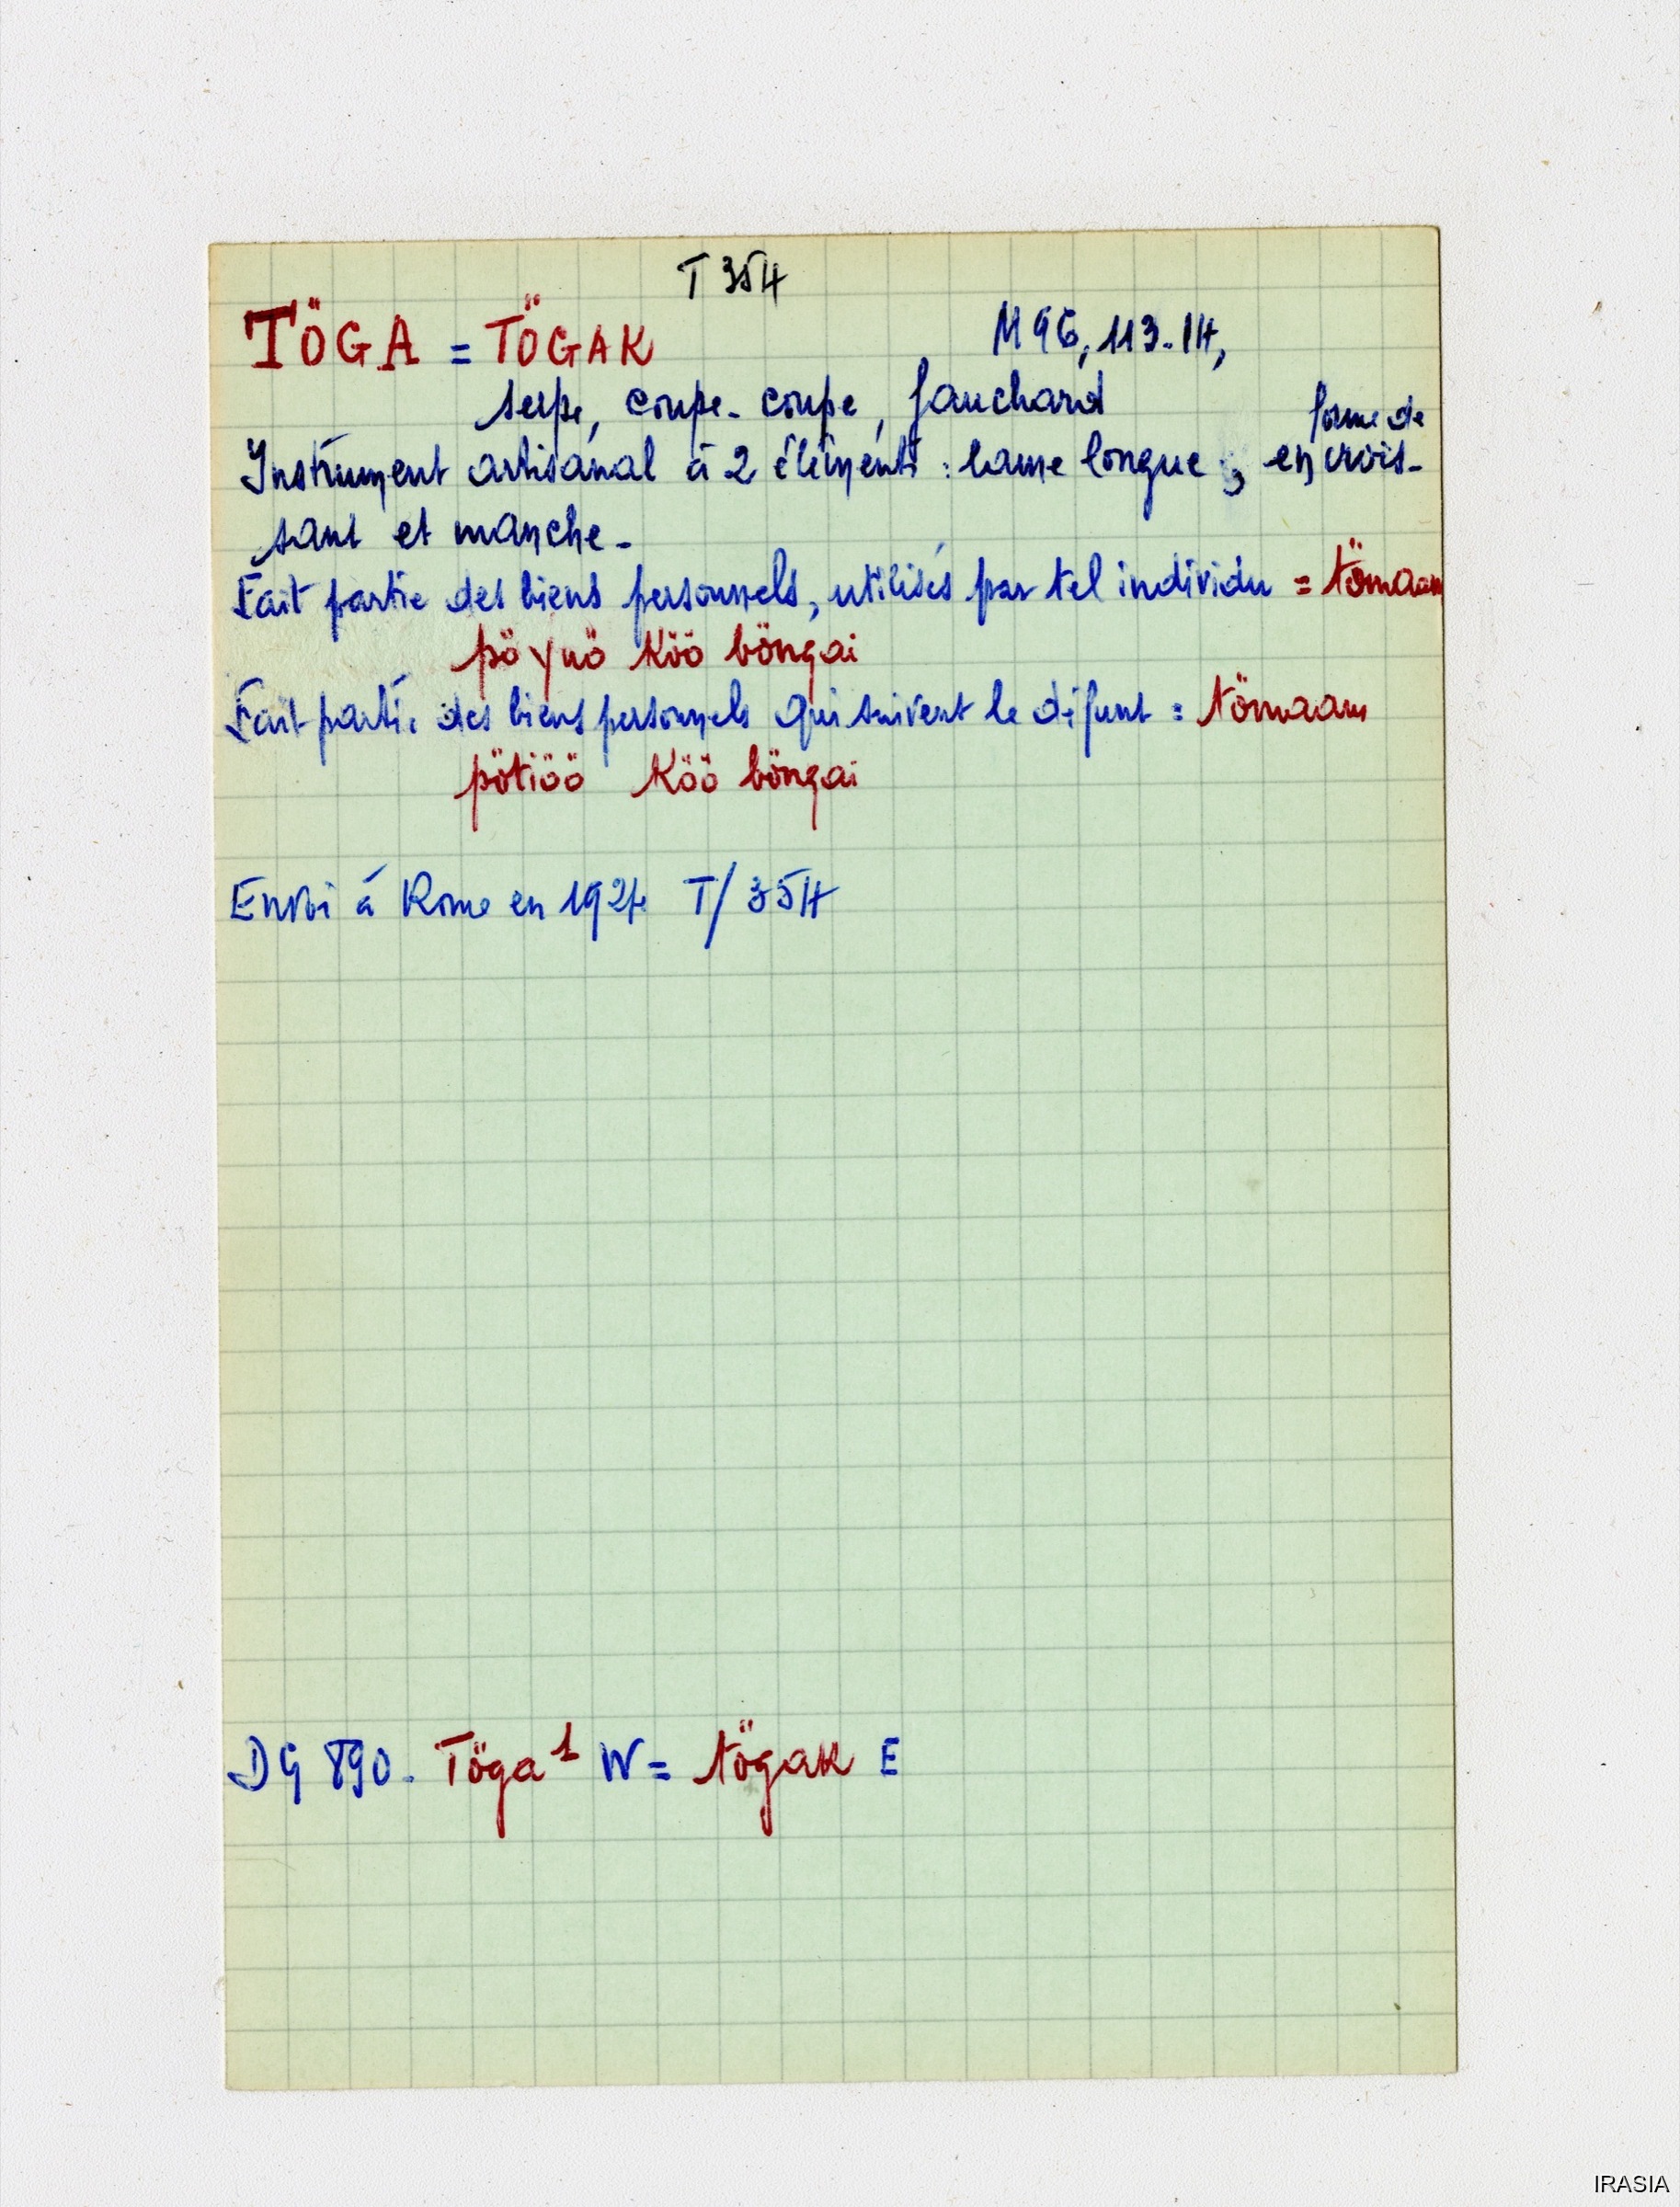 T 354
TÖGA = TÖGAK M 96, 113-14,
serpe, coupe-coupe, fauchard
forme de
Instrument artisanal à 2 éléments : lame longue, en crois-
sant et manche -
Fait partie des biens personnels, utilisés par tel individu = tömaam
pö ynö köö böngai
Fait partie des biens personnels qui suivent le défunt = tömaam
pötiöö Köö böngai
Envoi à Rome en 1924 T/354
DG 890. Töga¹ W = tögak E
IRASIA